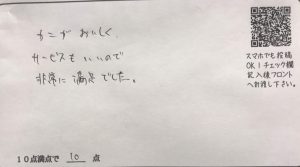 カニがおいしく、
サービスもいいので
非常に満足でした。
10点満点で 10 点
スマホでも投稿
OK!チェック欄
記入後フロント
へお渡し下さい。